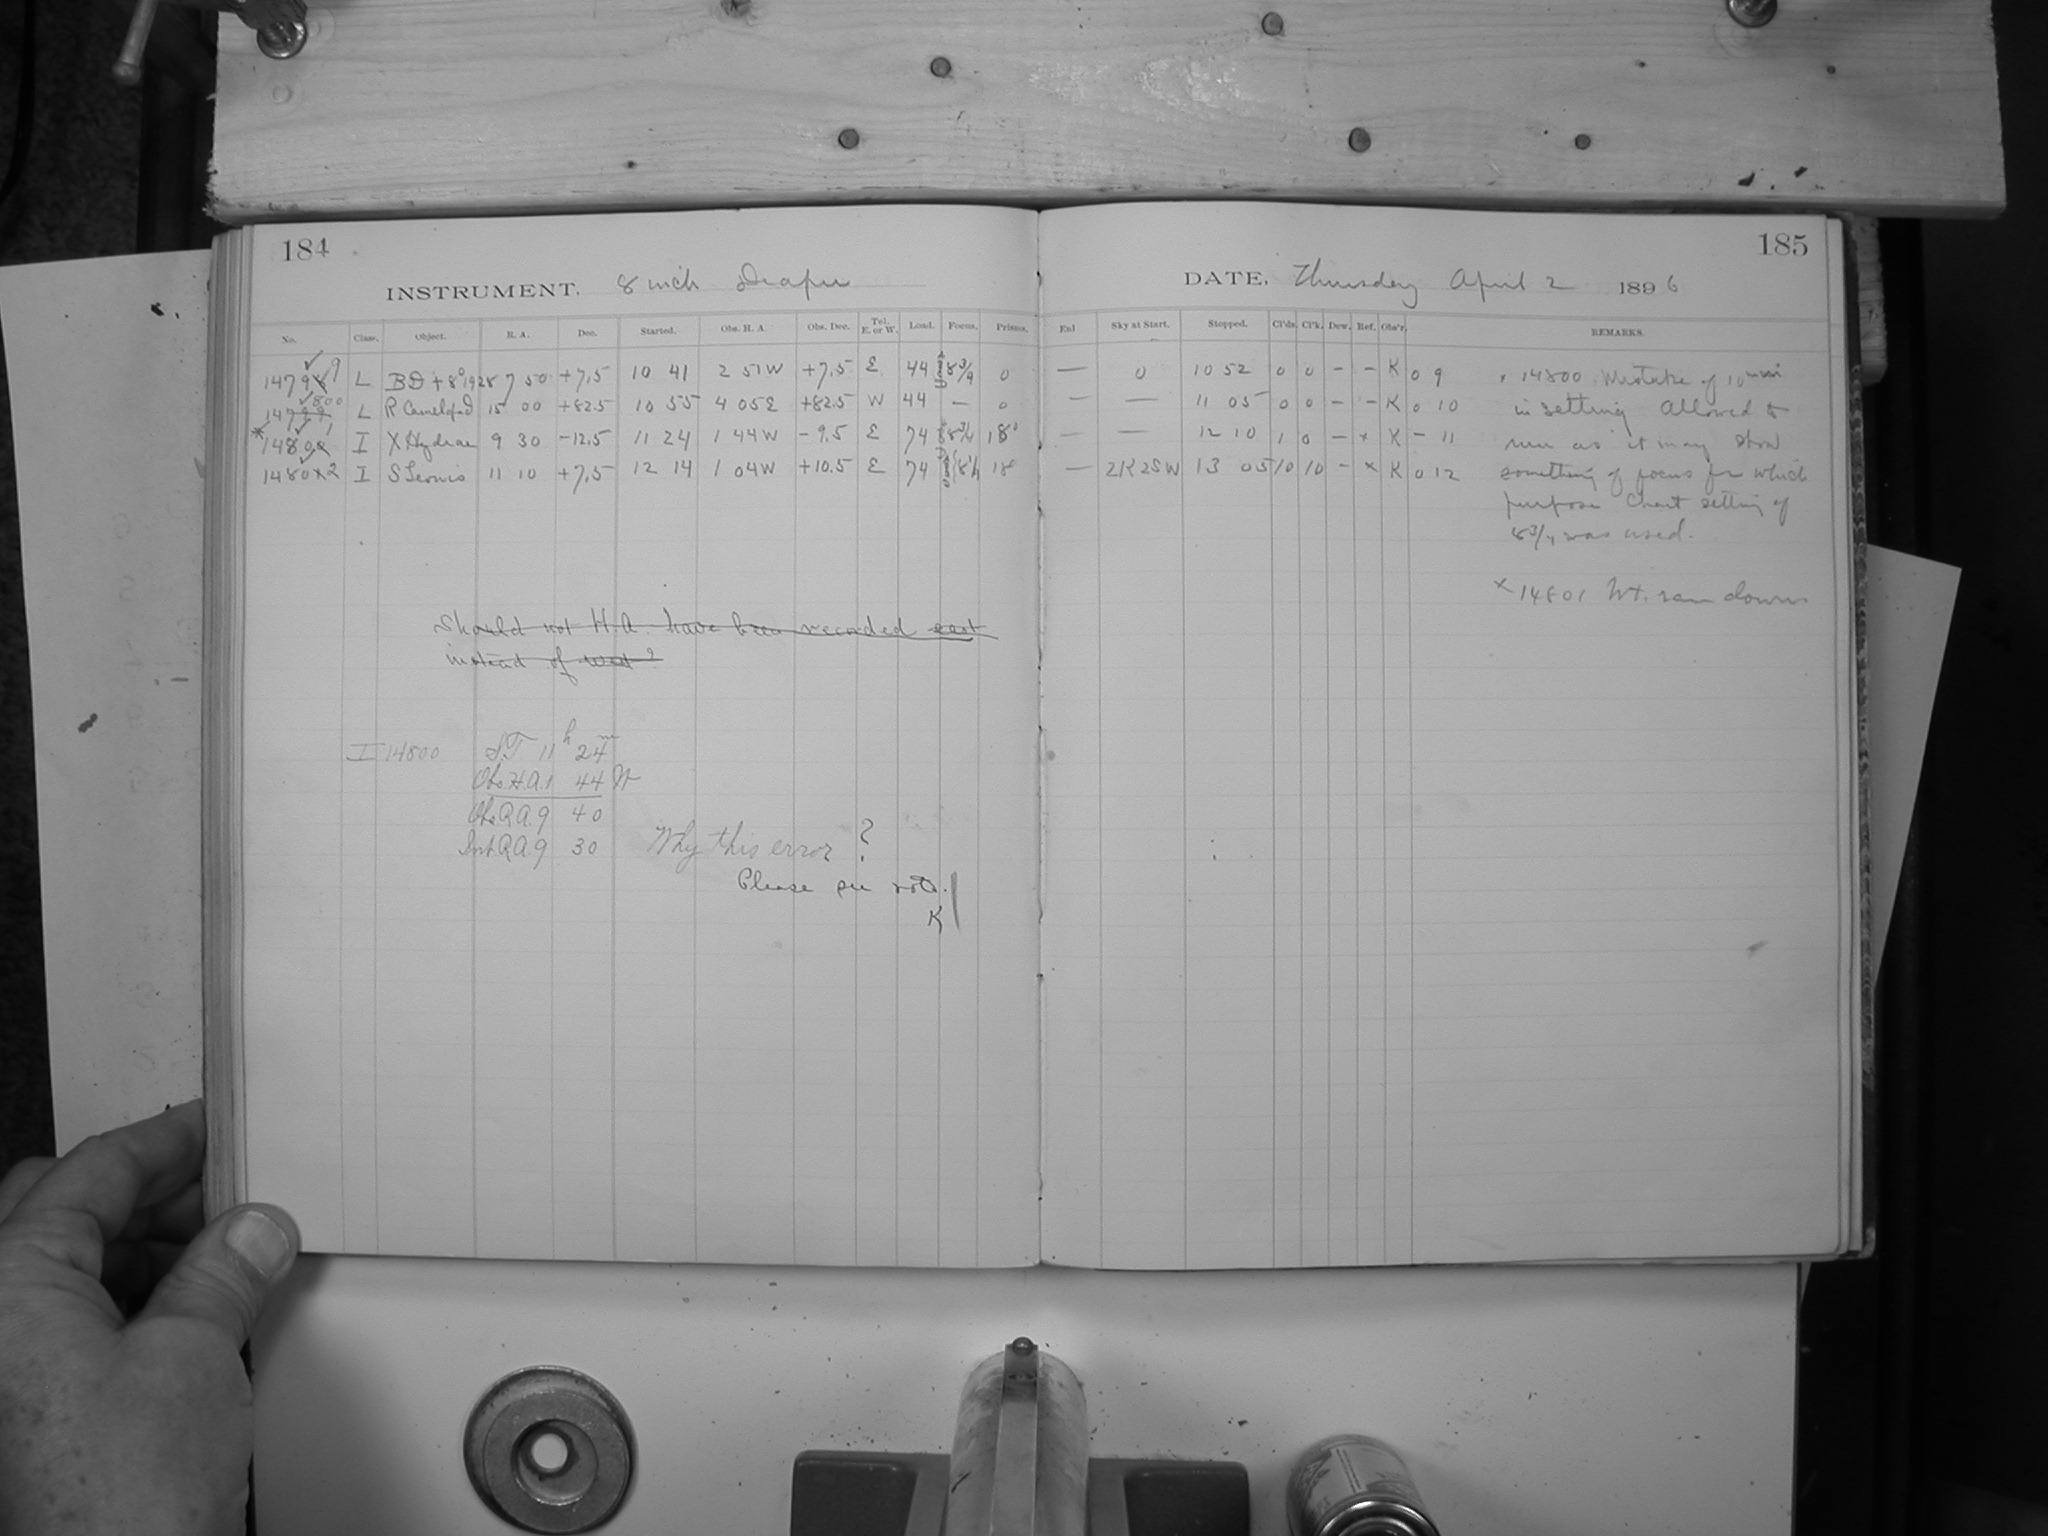 184
185
INSTRUMENT. 8 inch Draper
DATE, Thursday April 2 1896
No. Class. Object. R. A. Dec. Started. Obs. H. A. Obs. Dec. Tel. E. or W. Load. Focus. Prisms. Enl Sky at Start. Stopped. Cl'ds. Cl'k. Dew. Ref. Obs'r. REMARKS.
1479 9 L BD +8°1928 7 50 +7.5 10 41 2 51W +7.5 E 44 8 3/4 0 — 0 10 52 0 0 – – K 0 9
14799 800 L R Camelopd 15 00 +82.5 10 55 4 05E +82.5 W 44 — 0 — — 11 05 0 0 – – K 0 10
* 1480 1 I X Hydrae 9 30 –12.5 11 24 1 44W –9.5 E 74 8 3/4 18° — — 12 10 1 0 – × K – 11
1480 2 I S Leonis 11 10 +7.5 12 14 1 04W +10.5 E 74 18 — 2K2SW 13 05 10 10 – × K 0 12
× 14800 Mistake of 10 min
in setting Allowed to
run as it may show
something of focus for which
purpose Chart setting of
8 3/4 was used.
× 14801 Wt. ran down
Should not H.A. have been recorded east
instead of west?
I 14800 S.T. 11h 24m
Obs. H.A. 1 44 W
Obs. R.A. 9 40
Int. R.A. 9 30 Why this error?
Please see note.
K